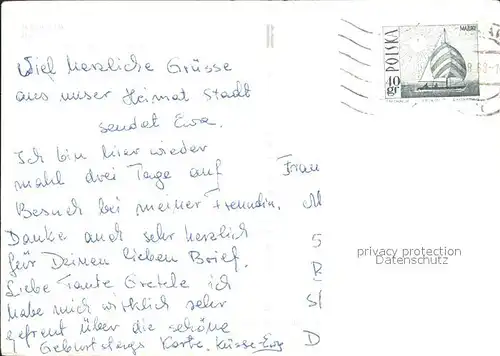 Viel herzliche Grüsse
aus unser Heimat Stadt
sendet Ewa.
Ich bin hier wieder
mahl drei Tage auf
Besuch bei meiner Freundin.
Danke auch sehr herzlich
für Deinen lieben Brief.
Liebe Tante Gretele ich
habe mich wirklich sehr
gefreut über die schöne
Geburtstags Karte. Küsse-Ewa
POLSKA
MAZURY
40 gr
Frau
M
5
R
Sł
D
privacy protection
Datenschutz